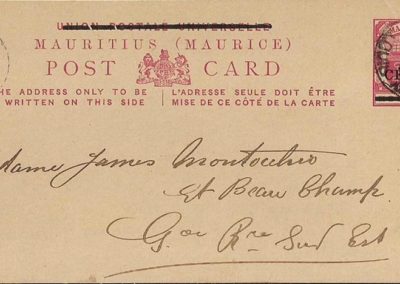 UNION POSTALE UNIVERSELLE
MAURITIUS (MAURICE)
POST CARD
HE ADDRESS ONLY TO BE
WRITTEN ON THIS SIDE
L'ADRESSE SEULE DOIT ÊTRE
MISE DE CE CÔTÉ DE LA CARTE
dame James
Et Beau Champ
Gde Rre Sud Est